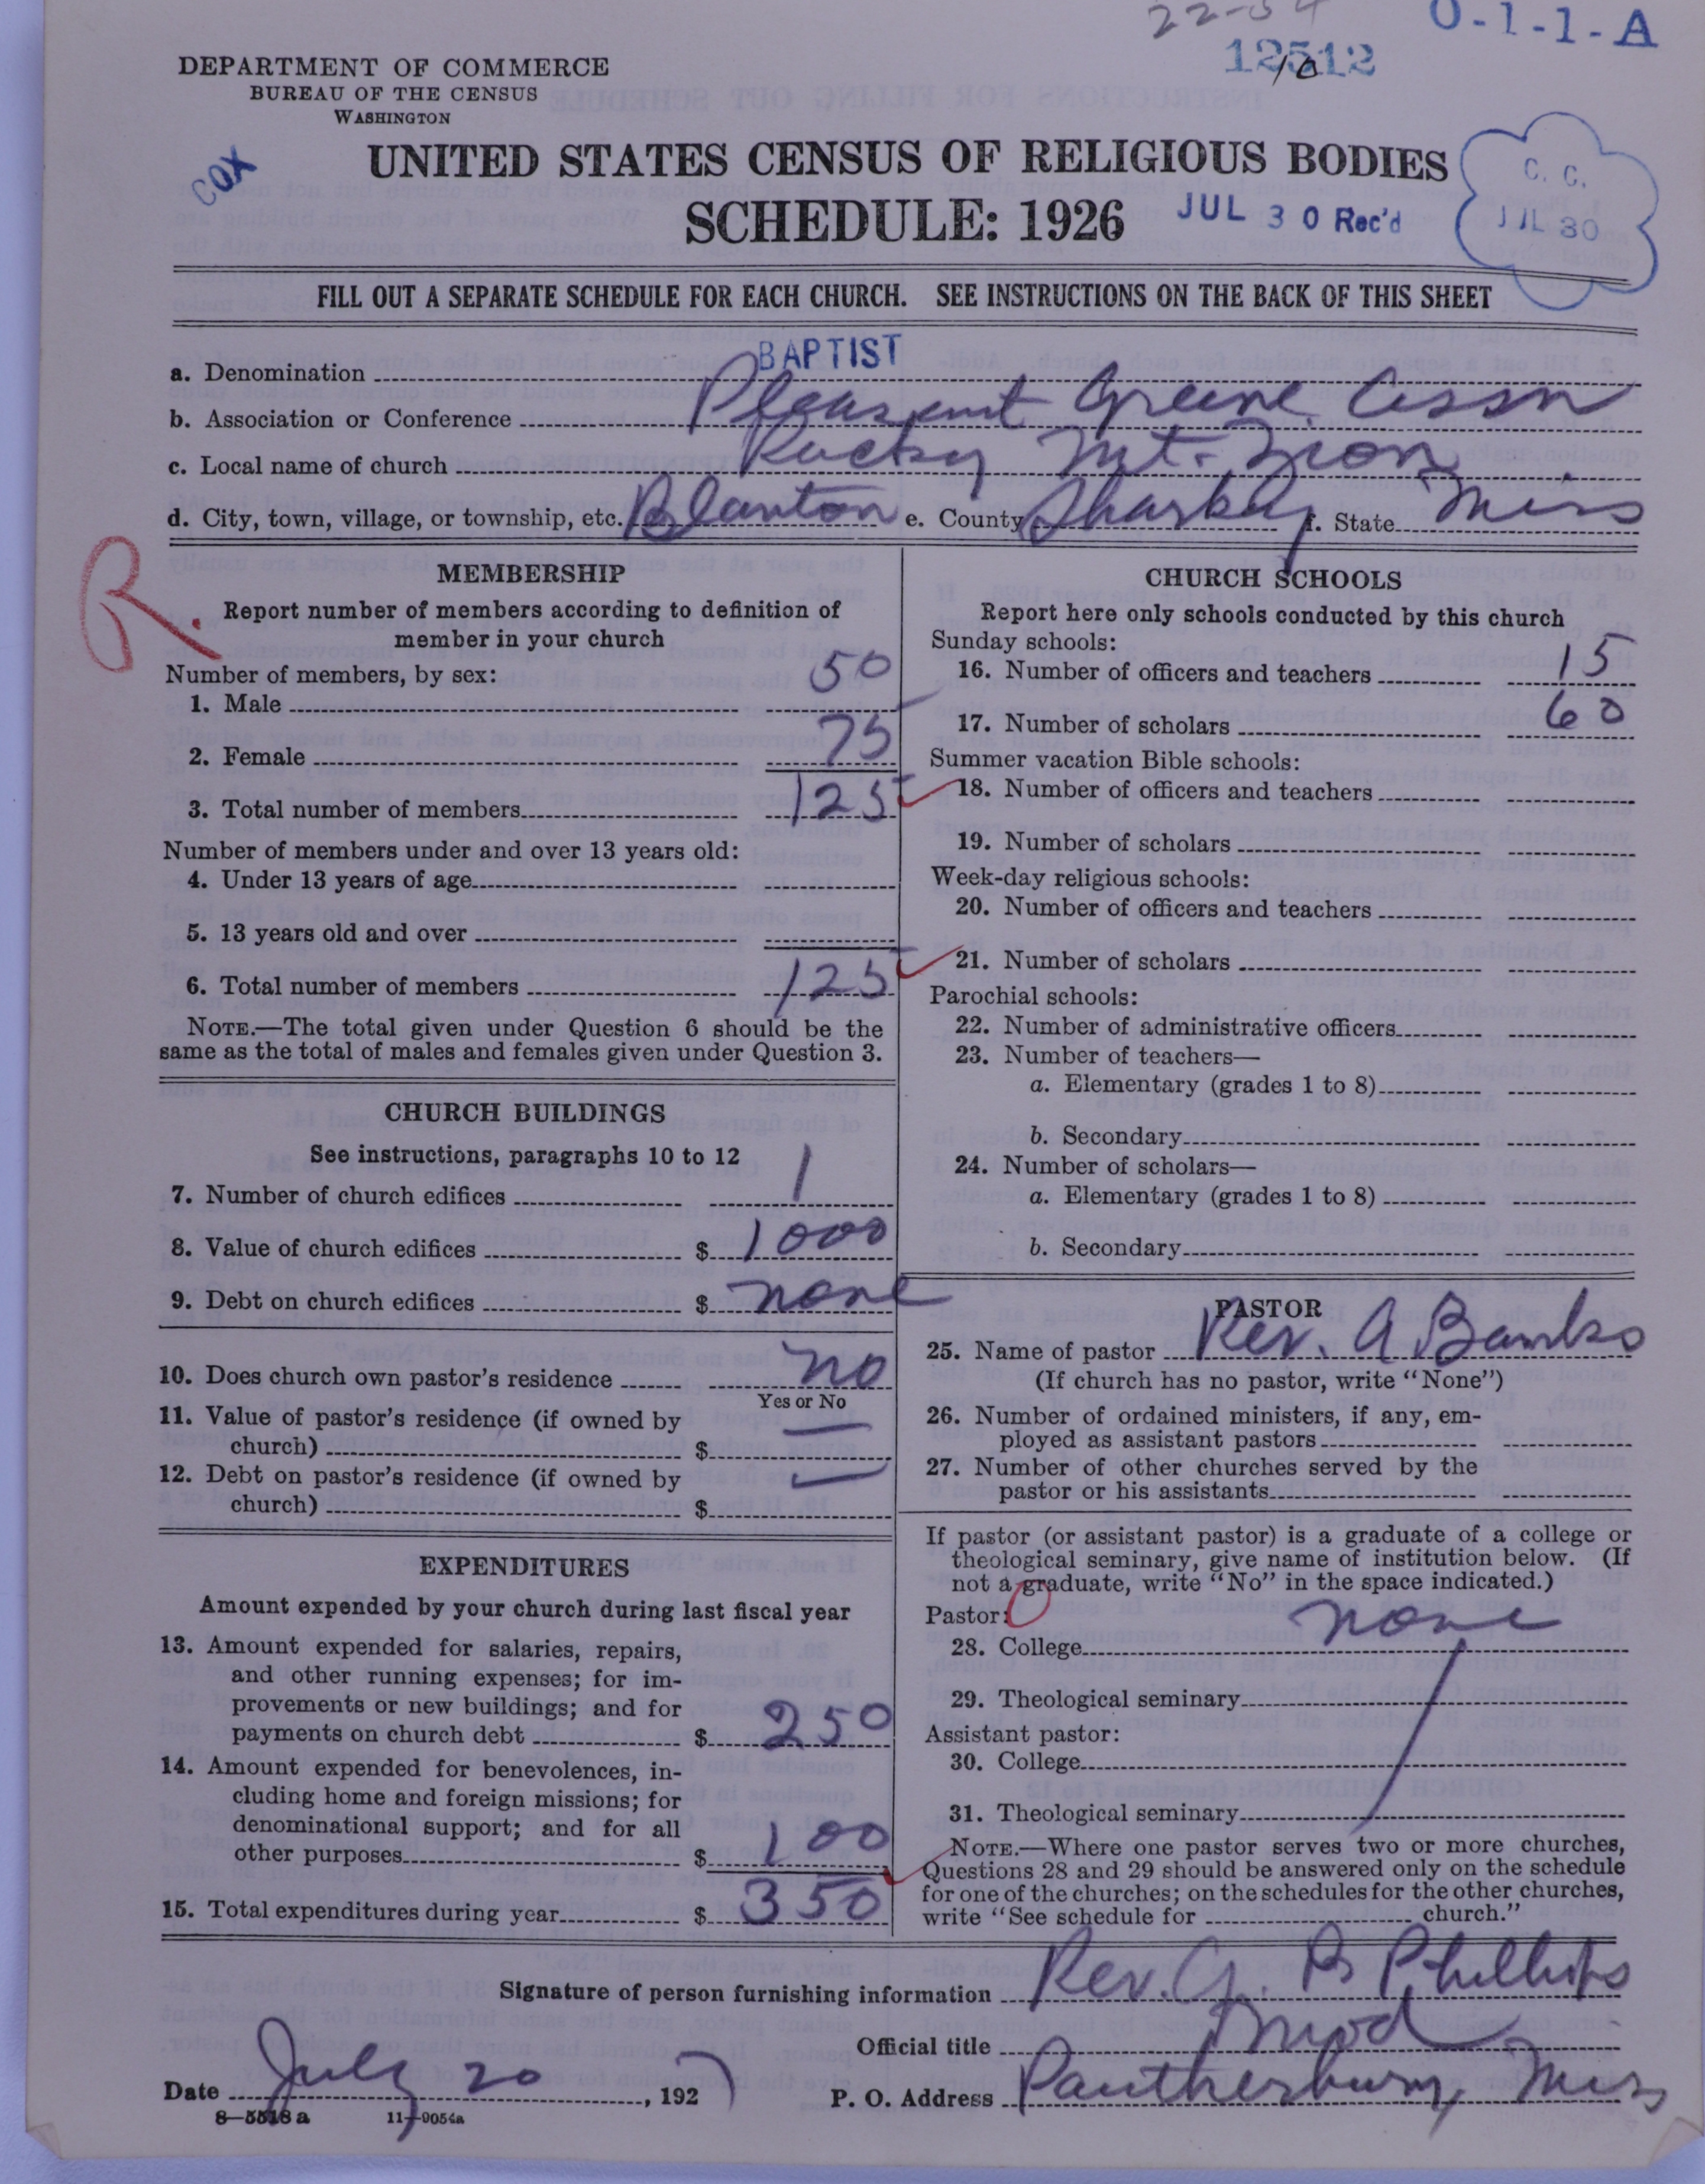 22-54
O-1-1-A
12512
10
DEPARTMENT OF COMMERCE
BUREAU OF THE CENSUS
WASHINGTON
COX
UNITED STATES CENSUS OF RELIGIOUS BODIES
SCHEDULE: 1926
JUL 30 Rec'd
C. C.
JUL 30
FILL OUT A SEPARATE SCHEDULE FOR EACH CHURCH. SEE INSTRUCTIONS ON THE BACK OF THIS SHEET
a. Denomination BAPTIST
b. Association or Conference Pleasant Greene Assn
c. Local name of church Rocky Mt. Zion
d. City, town, village, or township, etc. Blanton e. County Sharkey f. State Miss
R.
MEMBERSHIP
Report number of members according to definition of
member in your church
Number of members, by sex:
1. Male 50
2. Female 75
3. Total number of members 125
Number of members under and over 13 years old:
4. Under 13 years of age
5. 13 years old and over
6. Total number of members 125
NOTE.—The total given under Question 6 should be the
same as the total of males and females given under Question 3.
CHURCH BUILDINGS
See instructions, paragraphs 10 to 12
7. Number of church edifices 1
8. Value of church edifices $ 1000
9. Debt on church edifices $ none
10. Does church own pastor's residence no
Yes or No
11. Value of pastor's residence (if owned by
church) $ —
12. Debt on pastor's residence (if owned by
church) $ —
EXPENDITURES
Amount expended by your church during last fiscal year
13. Amount expended for salaries, repairs,
and other running expenses; for im-
provements or new buildings; and for
payments on church debt $ 250
14. Amount expended for benevolences, in-
cluding home and foreign missions; for
denominational support; and for all
other purposes $ 100
15. Total expenditures during year $ 350
CHURCH SCHOOLS
Report here only schools conducted by this church
Sunday schools:
16. Number of officers and teachers 15
17. Number of scholars 60
Summer vacation Bible schools:
18. Number of officers and teachers
19. Number of scholars
Week-day religious schools:
20. Number of officers and teachers
21. Number of scholars
Parochial schools:
22. Number of administrative officers
23. Number of teachers—
a. Elementary (grades 1 to 8)
b. Secondary
24. Number of scholars—
a. Elementary (grades 1 to 8)
b. Secondary
PASTOR
25. Name of pastor Rev. A Banks
(If church has no pastor, write "None")
26. Number of ordained ministers, if any, em-
ployed as assistant pastors
27. Number of other churches served by the
pastor or his assistants
If pastor (or assistant pastor) is a graduate of a college or
theological seminary, give name of institution below. (If
not a graduate, write "No" in the space indicated.)
Pastor:
28. College none
29. Theological seminary
Assistant pastor:
30. College
31. Theological seminary
NOTE.—Where one pastor serves two or more churches,
Questions 28 and 29 should be answered only on the schedule
for one of the churches; on the schedules for the other churches,
write "See schedule for church."
Signature of person furnishing information Rev. G. B Phillips
Official title Mod
Date July 20, 1927 P. O. Address Pantherburn, Miss
8—5518 a 11—9054a